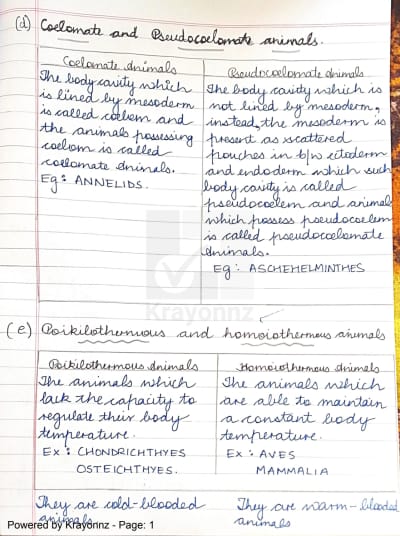 (d) Coelomate and Pseudocoelomate animals.
Coelomate Animals
The body cavity which
is lined by mesoderm
is called coelom and
the animals possessing
coelom is called
coelomate animals.
Eg: ANNELIDS.
Pseudocoelomate animals
The body cavity which is
not lined by mesoderm,
instead, the mesoderm is
present as scattered
pouches in b/w ectoderm
and endoderm which such
body cavity is called
pseudocoelem and animals
which possess pseudocoelem
is called pseudocoelomate
animals.
Eg: ASCHEHELMINTHES
Krayonnz
(e) Poikilothermous and homoiothermous animals
Poikilothermous Animals
The animals which
lack the capacity to
regulate their body
temperature.
Ex: CHONDRICHTHYES
OSTEICHTHYES.
Homoiothermous Animals
The animals which
are able to maintain
a constant body
temperature.
Ex: AVES
MAMMALIA
They are cold-blooded
animals
They are warm-blooded
animals
Powered by Krayonnz - Page: 1